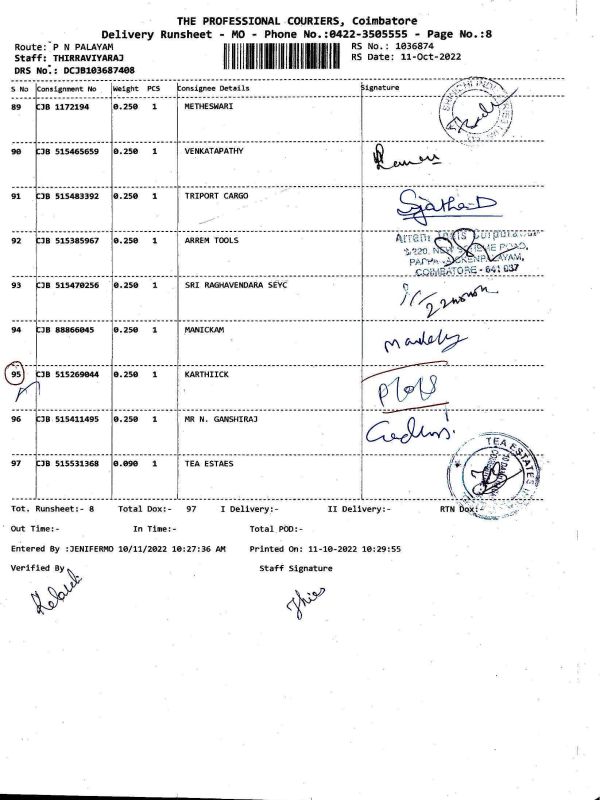 THE PROFESSIONAL COURIERS, Coimbatore
Delivery Runsheet - MO - Phone No.:0422-3505555 - Page No.:8
Route: P N PALAYAM RS No.: 1036874
Staff: THIRRAVIYARAJ RS Date: 11-Oct-2022
DRS No.: DCJB103687408
S No Consignment No Weight PCS Consignee Details Signature
89 CJB 1172194 0.250 1 METHESWARI
90 CJB 515465659 0.250 1 VENKATAPATHY
91 CJB 515483392 0.250 1 TRIPORT CARGO
92 CJB 515385967 0.250 1 ARREM TOOLS
COIMBATORE - 641 037
93 CJB 515470256 0.250 1 SRI RAGHAVENDARA SEYC
94 CJB 88866045 0.250 1 MANICKAM
95 CJB 515269044 0.250 1 KARTHIICK
96 CJB 515411495 0.250 1 MR N. GANSHIRAJ
97 CJB 515531368 0.090 1 TEA ESTAES
TEA ESTATES
Tot. Runsheet:- 8 Total Dox:- 97 I Delivery:- II Delivery:- RTN Dox:-
Out Time:- In Time:- Total POD:-
Entered By :JENIFERMO 10/11/2022 10:27:36 AM Printed On: 11-10-2022 10:29:55
Verified By Staff Signature